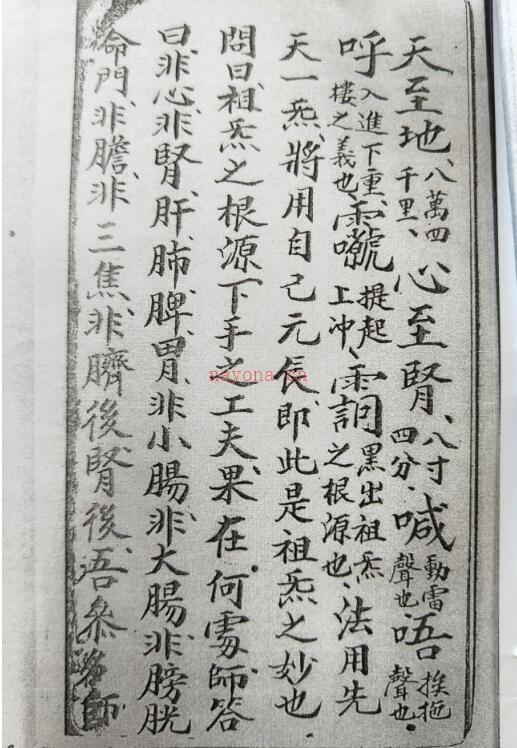 天至地、八萬四千里、心至腎、八寸四分.喊動雷聲也.唔挨拖聲也.
呼入進下重樓之義也、提起上冲、黑出祖炁之根源也、法用先
天一炁、將用自己元辰、即此是祖炁之妙也
問曰、祖炁之根源、下手之工夫、果在何處、師答
曰、非心、非腎、肝、肺、脾、胃、非小腸、非大腸、非膀胱
命門、非膽、非三焦、非臍後、腎後、吾叅名師
nayona.cn